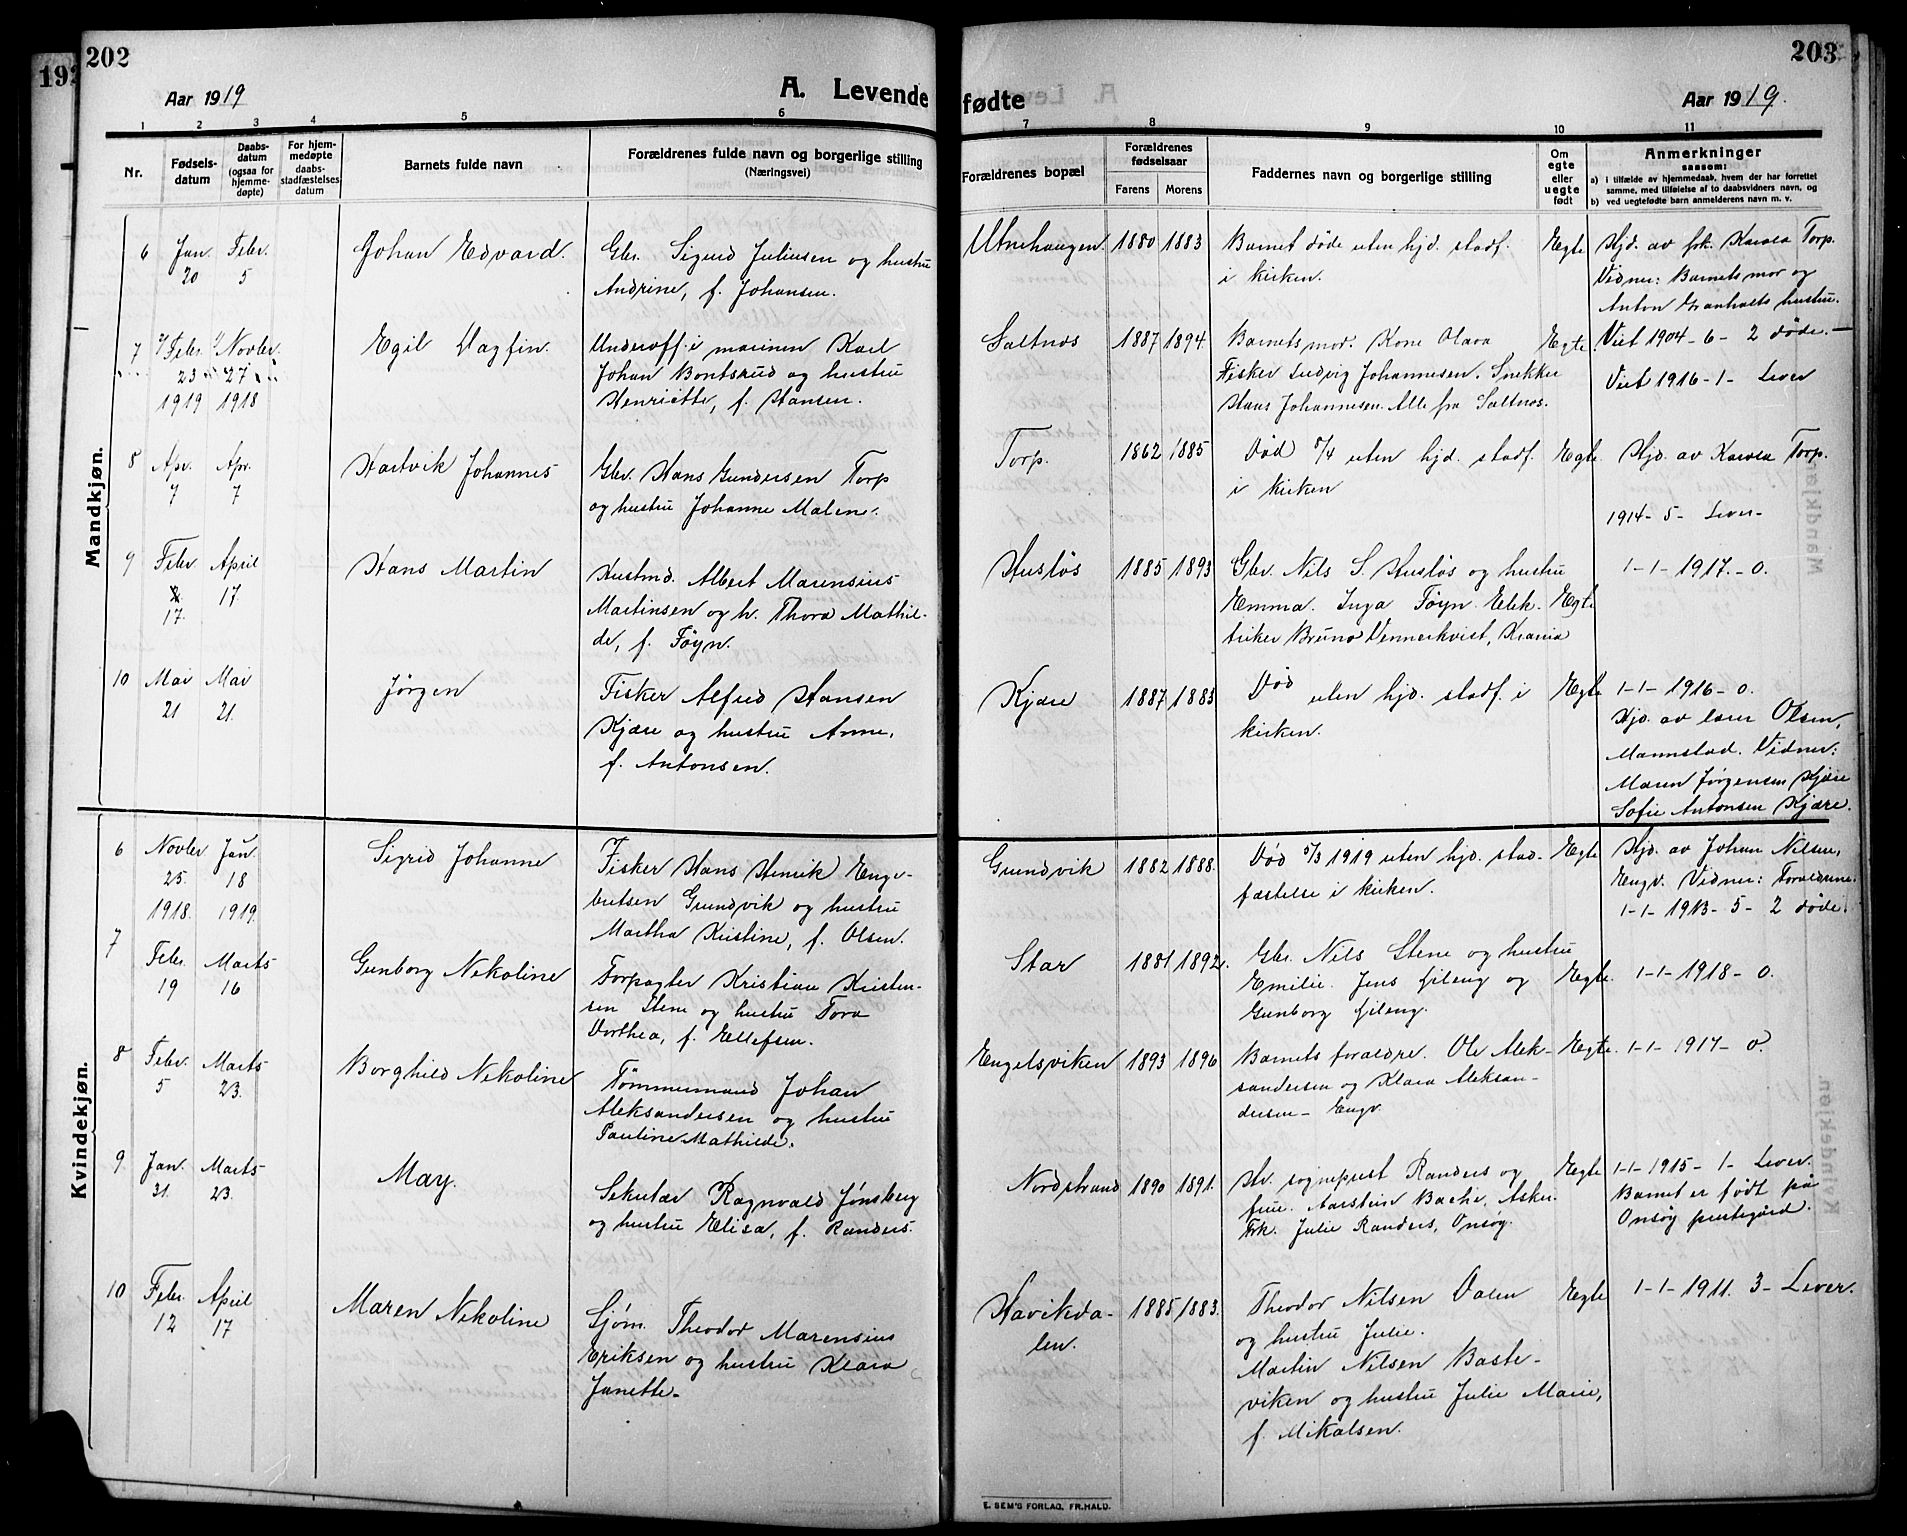 192
202
Aar 1919
A. Levende
1 2 3 4 5 6
Nr.
Fødsels-
datum
Daabs-
datum
(ogsaa for
hjemme-
døpte)
For hjem-
medøpte
daabs-
stadfæstelses
datum
Barnets fulde navn
Forældrenes fulde navn og borgerlige stilling
(Næringsvei)
Mandkjøn.
6 Jan. Febr. Johan Edvard. Gbr. Sigurd Juliusen og hustru
20 5 Andrine, f. Johansen.
7 Febr. Novbr. Egil Dagfin. Underoff. i marinen Karl
23 27 Johan Bontsrud og hustru
1919 1918 Henriette, f. Hansen.
8 Apr. Apr. Hartvik Johannes Gbr. Hans Gundersen Torp
7 7 og hustru Johanne Malene.
9 Febr. April Hans Martin Kustmd. Albert Marensius
17 Martinsen og h. Thora Mathil-
17. de, f. Føyn.
10 Mai Mai Jørgen Fisker Alfred Hansen
21 21. Kjære og hustru Anne,
f. Antonsen.
Kvindekjøn.
6 Novbr Jan. Sigrid Johanne Fisker Hans Henrik Enge-
25. 18 bretsen Grundvik og hustru
1918. 1919. Martha Kristine, f. Olsen.
7 Febr. Marts Gunborg Nekoline Forpagter Kristian Kristen-
19 16 sen Stene og hustru Tora
Dorthea, f. Ellefsen.
8 Febr. Marts Borghild Nekoline Tømmermand Johan
5 23. Aleksandersen og hustru
Pauline Mathilde.
9 Jan. Marts May. Sekretær Ragnvald Jønsberg
31. 23. og hustru Elisa, f. Randers.
10 Febr. April Maren Nekoline Sjøm. Theodor Marensius
12 17 Eriksen og hustru Klara
Janette.
203
fødte
Aar 1919.
7 8 9 10 11
Forældrenes bopæl
Forældrenes
fødselsaar
Farens Morens
Faddernes navn og borgerlige stilling
Om
egte
eller
uegte
født
Anmerkninger
saasom:
a) i tilfælde av hjemmedaab, hvem der har forrettet
samme, med tilføielse af to daabsvidners navn, og
b) ved uegtefødte barn anmelderens navn m. v.
Utnehaugen 1880 1883 Barnet døde uten hjd. stadf. Egte Hjd. av frk. Karola Torp.
i kirken. Vidner: Barnets mor og
Anton Granholts hustru.
Saltnes 1887 1894. Barnets mor. Kone Olava Egte. Viet 1904 - 6 - 2 døde.
Fisker Ludvig Johannesen. Snekker Viet 1916 - 1 - Lever
Hans Johannesen. Alle fra Saltnes.
Torp. 1862 1885 Død 8/4 uten hjd. stadf. Egte Hjd. av Karola Torp.
i kirken
1914 - 5 - Lever -
Husløs 1885 1893 Gbr. Nils S. Husløs og hustru 1-1-1917. - 0.
Emma. Inga Føyn. Elek- Egte
triker Bruno Vennerkvist, Krania
Kjære 1887 1883 Død uten hjd. stadf. i Egte 1-1-1916 - 0.
kirken. Hjd. av lærer Olsen,
Mannstad. Vidner:
Maren Jørgensen Kjære
Sofie Antonsen Kjære.
Grundvik 1882 1888. Død 5/3 1919 uten hjd. stad- Egte Hjd. av Johan Nilsen,
fæstelse i kirken. Engv. Vidner: Foraldrene.
1-1-1913 - 5 - 2 døde.
Star 1881 1892. Gbr. Nils Stene og hustru
Emilie. Jens Lileng og Egte. 1-1-1918 - 0.
Gunborg Lileng.
Engelsviken 1893 1896 Barnets foraldre. Ole Alek- Egte. 1-1-1917 - 0.
sandersen og Klara Aleksan-
dersen - Engv.
Nordstrand 1890 1891. Hr. sogneprest Randers og Egte 1-1-1915 - 1 - Lever.
frue. Aarstein Bache, Asker. Barnet er født på
Frk. Julie Randers, Onsøy. Onsøy prestegård.
Havikda- 1885 1883. Theodor Nilsen Dalen Egte 1-1-1911. 3 - Lever.
len. og hustru Julie.
Martin Nilsen Baste-
viken og hustru Julie Marie,
f. Mikalsen.
E. SEM'S FORLAG, FR.HALD.